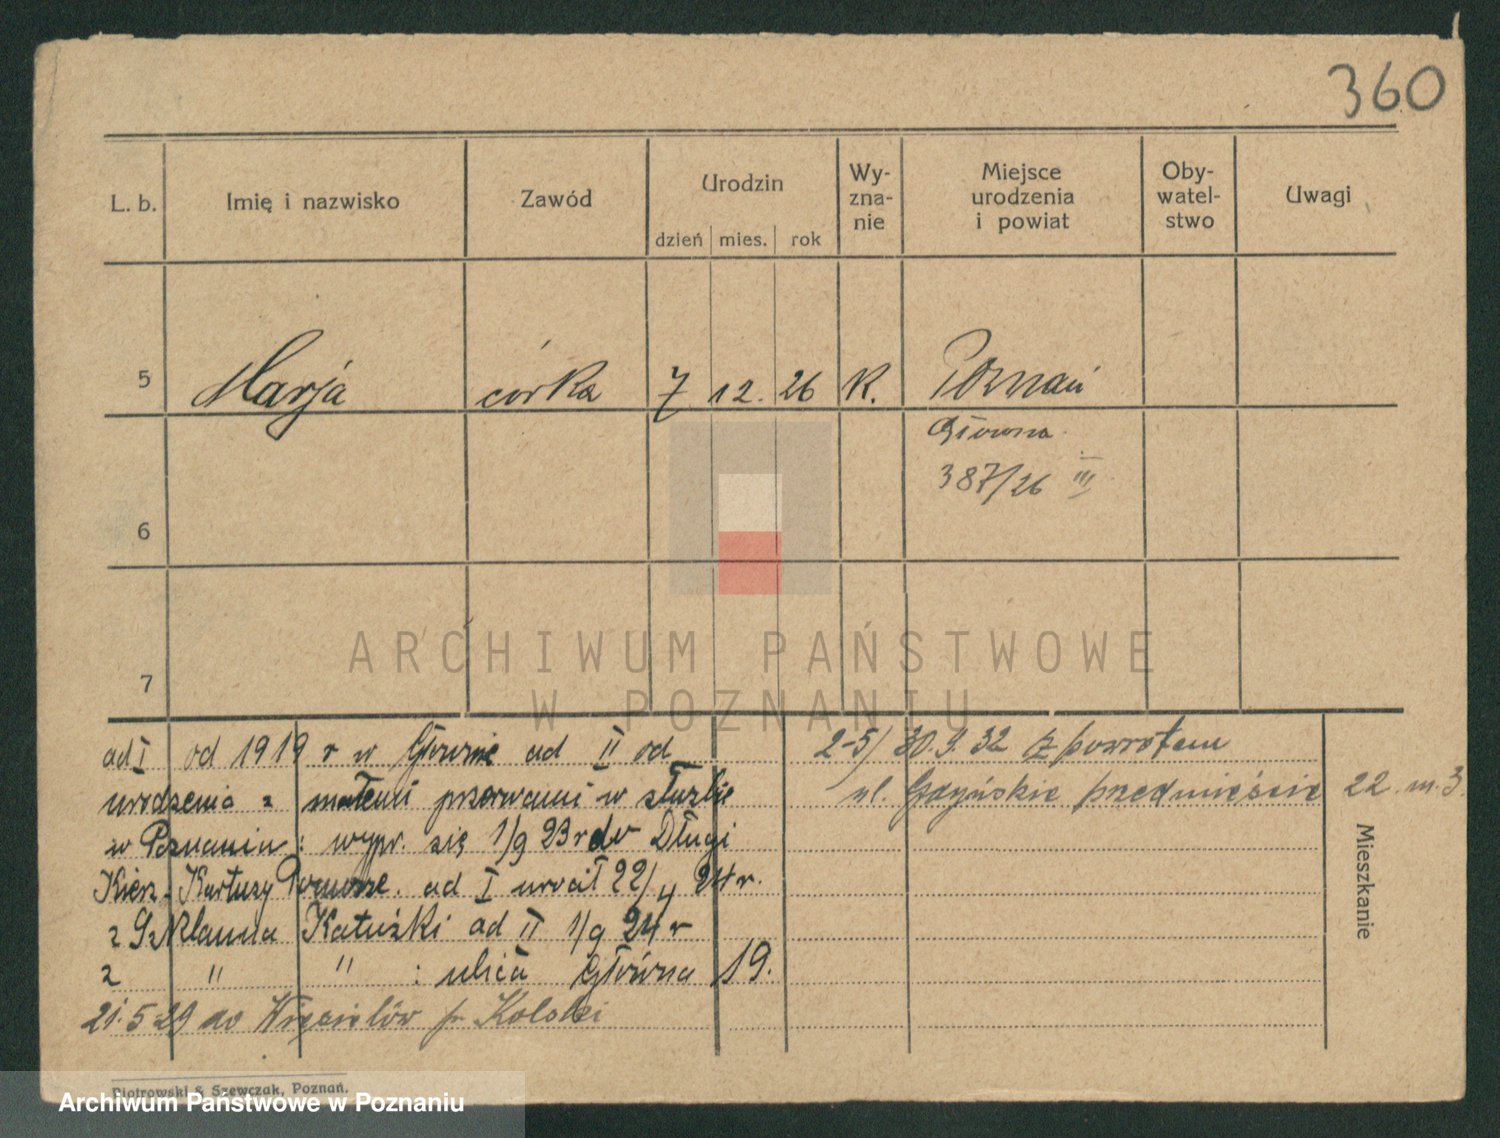 360
L. b. Imię i nazwisko Zawód Urodzin dzień mies. rok Wy-zna-nie Miejsce urodzenia i powiat Oby-watel-stwo Uwagi
5 Marja córka 7 12. 26 K. Poznań
Główna
387/26 III
6
7
ARCHIWUM PAŃSTWOWE
W POZNANIU
ad I od 1919 r w Głównie ad II od
urodzenia z małemi przerwami w służbie
w Poznaniu: wypr. się 1/9 23 r do Długi
Kierz. Kartuzy Pomorze. ad I wrócił 22/4 24 r.
z Szklanna Katuzki ad II 1/9 24 r
z " " : ulica Główna 19.
21.5.29 do p. Kolski
2-5/ 30.9.32 z powrotem
ul. Gdyńskie przedmieście 22 m. 3
Mieszkanie
Piotrowski & Szewczak, Poznań.
Archiwum Państwowe w Poznaniu